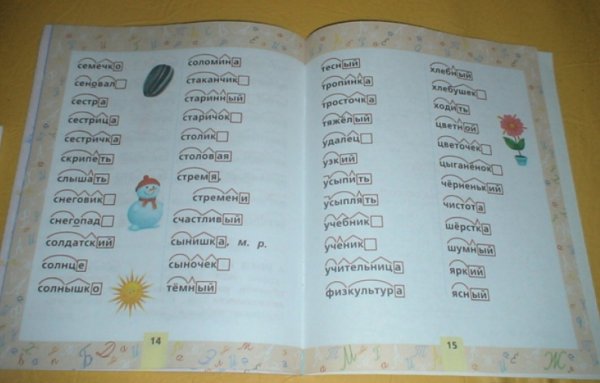 семечко
сеновал
сестра
сестрица
сестричка
скрипеть
слышать
снеговик
снегопад
солдатский
солнце
солнышко
соломина
стаканчик
старинный
старичок
столик
столовая
стремя,
стремени
счастливый
сынишка, м. р.
сыночек
тёмный
14
тесный
тропинка
тросточка
тяжёлый
удалец
узкий
усыпить
усыплять
учебник
ученик
учительница
физкультура
хлебный
хлебушек
ходить
цветной
цветочек
цыганёнок
чёрненький
чистота
шёрстка
шумный
яркий
ясный
15